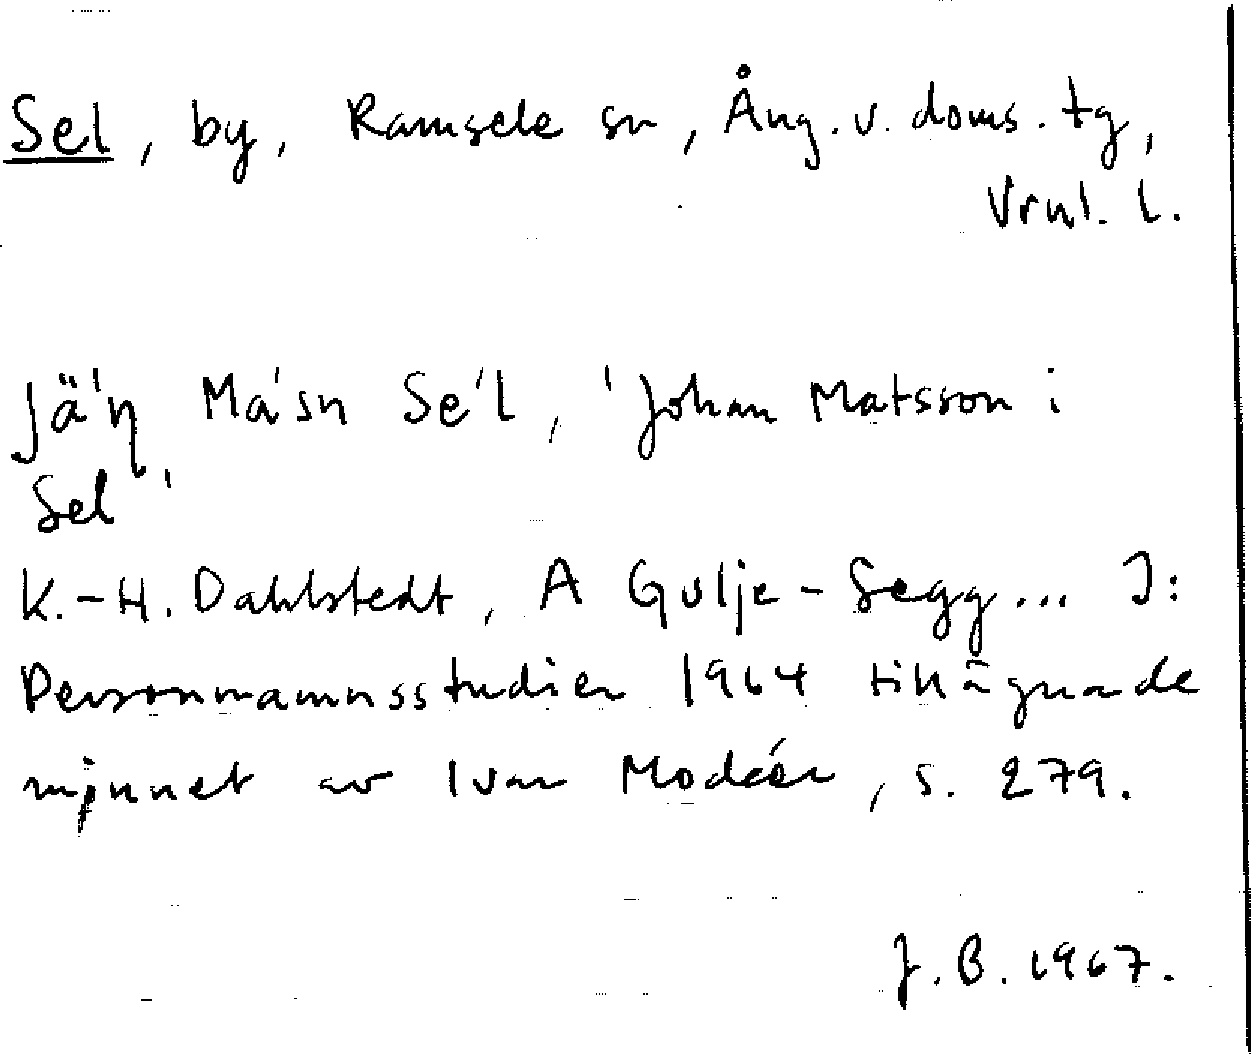 Sel, by, Ramsele sn, Ång. v. doms. tg,
Vrnl. l.
Jä'ṇ Ma'sn Se'l, 'Johan Matsson i
Sel'
K.-H. Dahlstedt, A Gulje-Segg... I:
Personnamnsstudier 1964 tillägnade
minnet av Ivar Modéer, s. 279.
J. B. 1967.